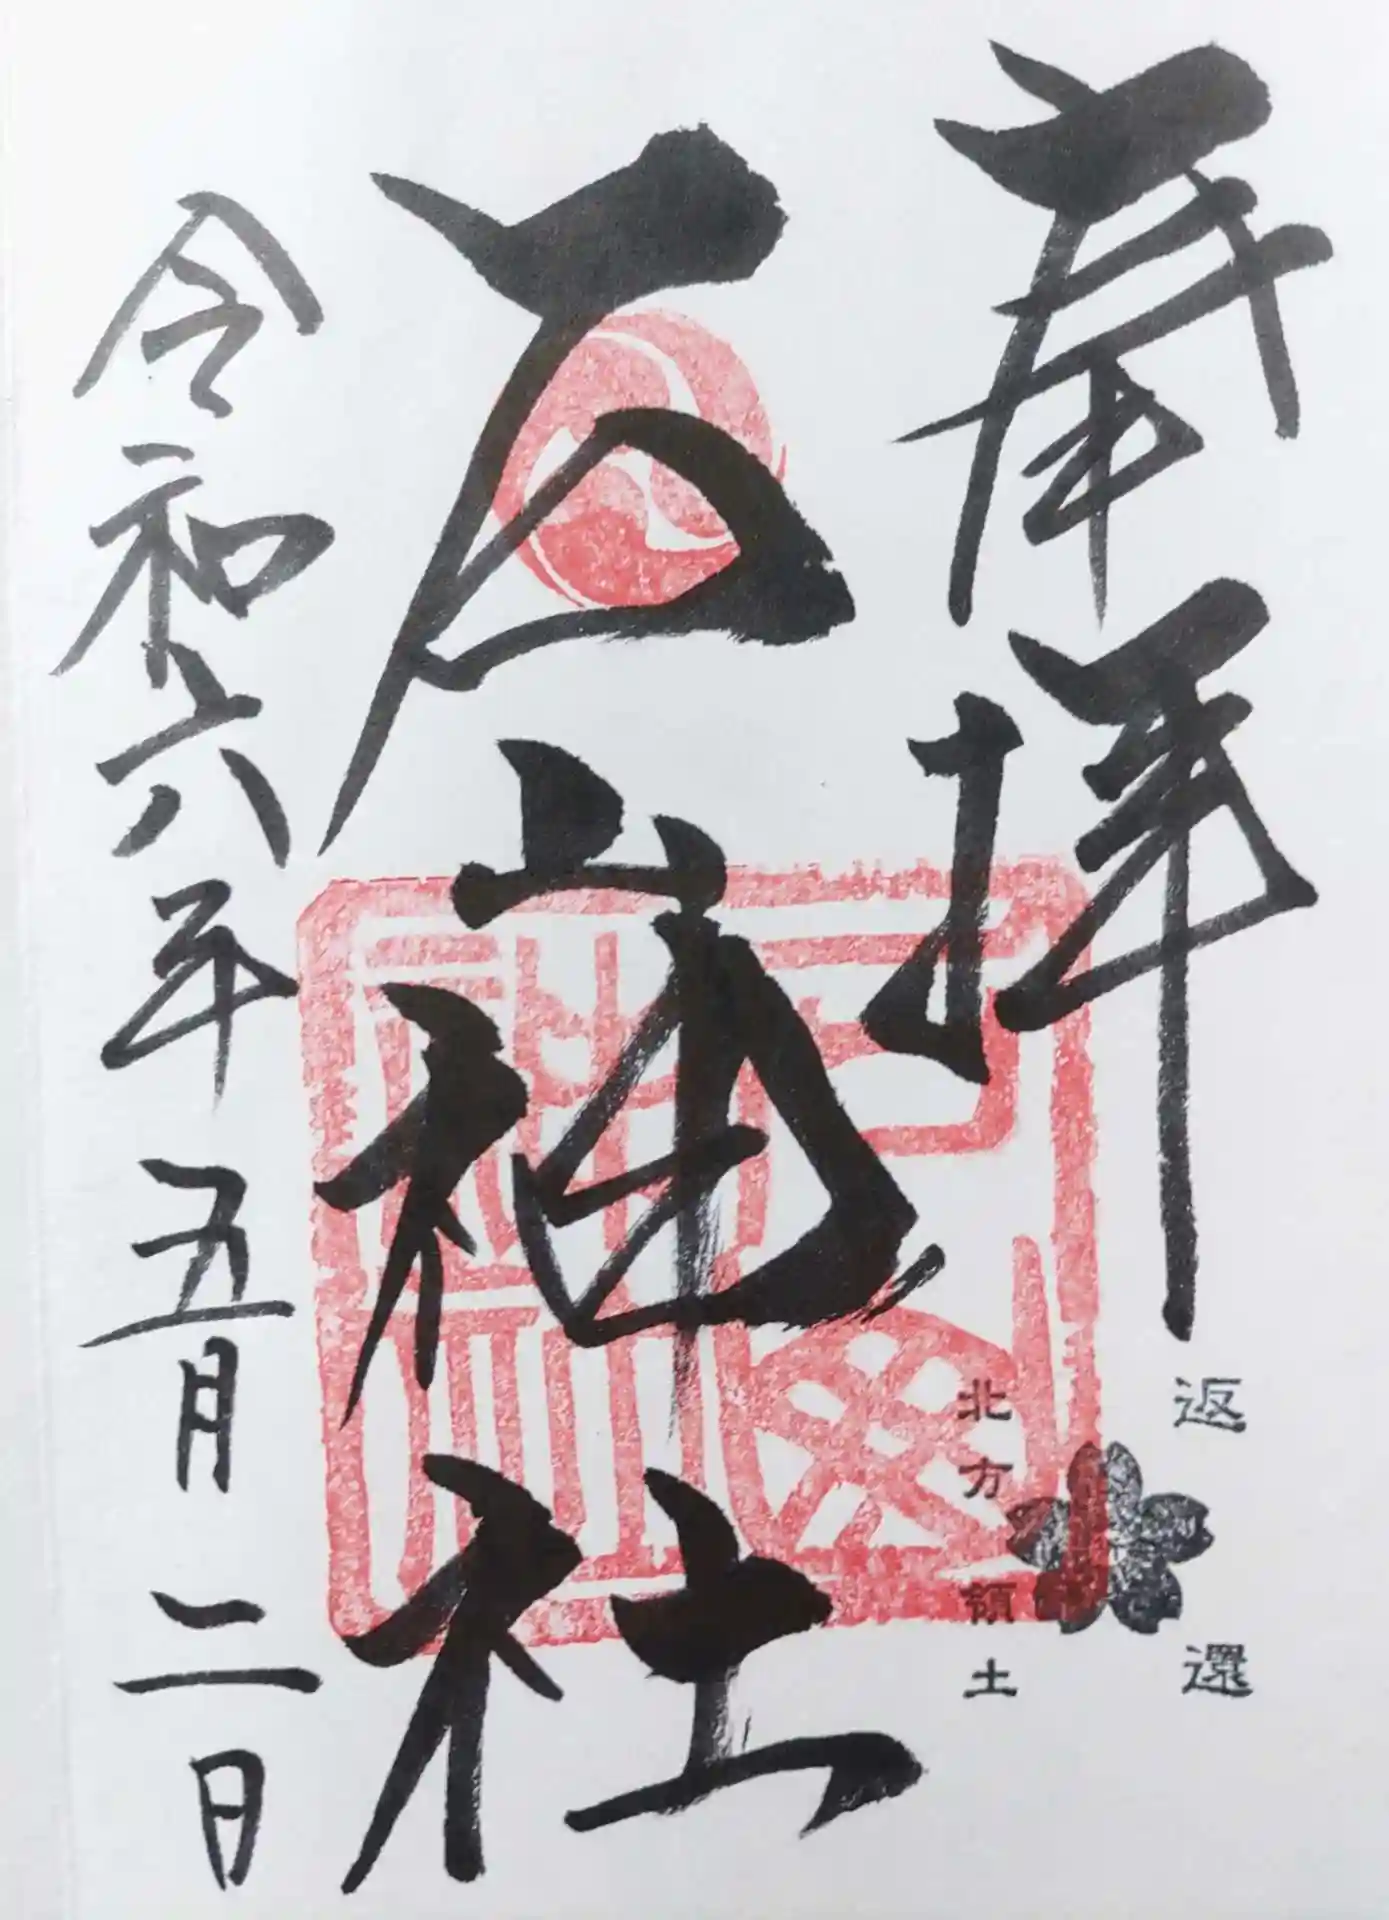 奉拝
返還
北方領土
石山神社
令和六年五月二日